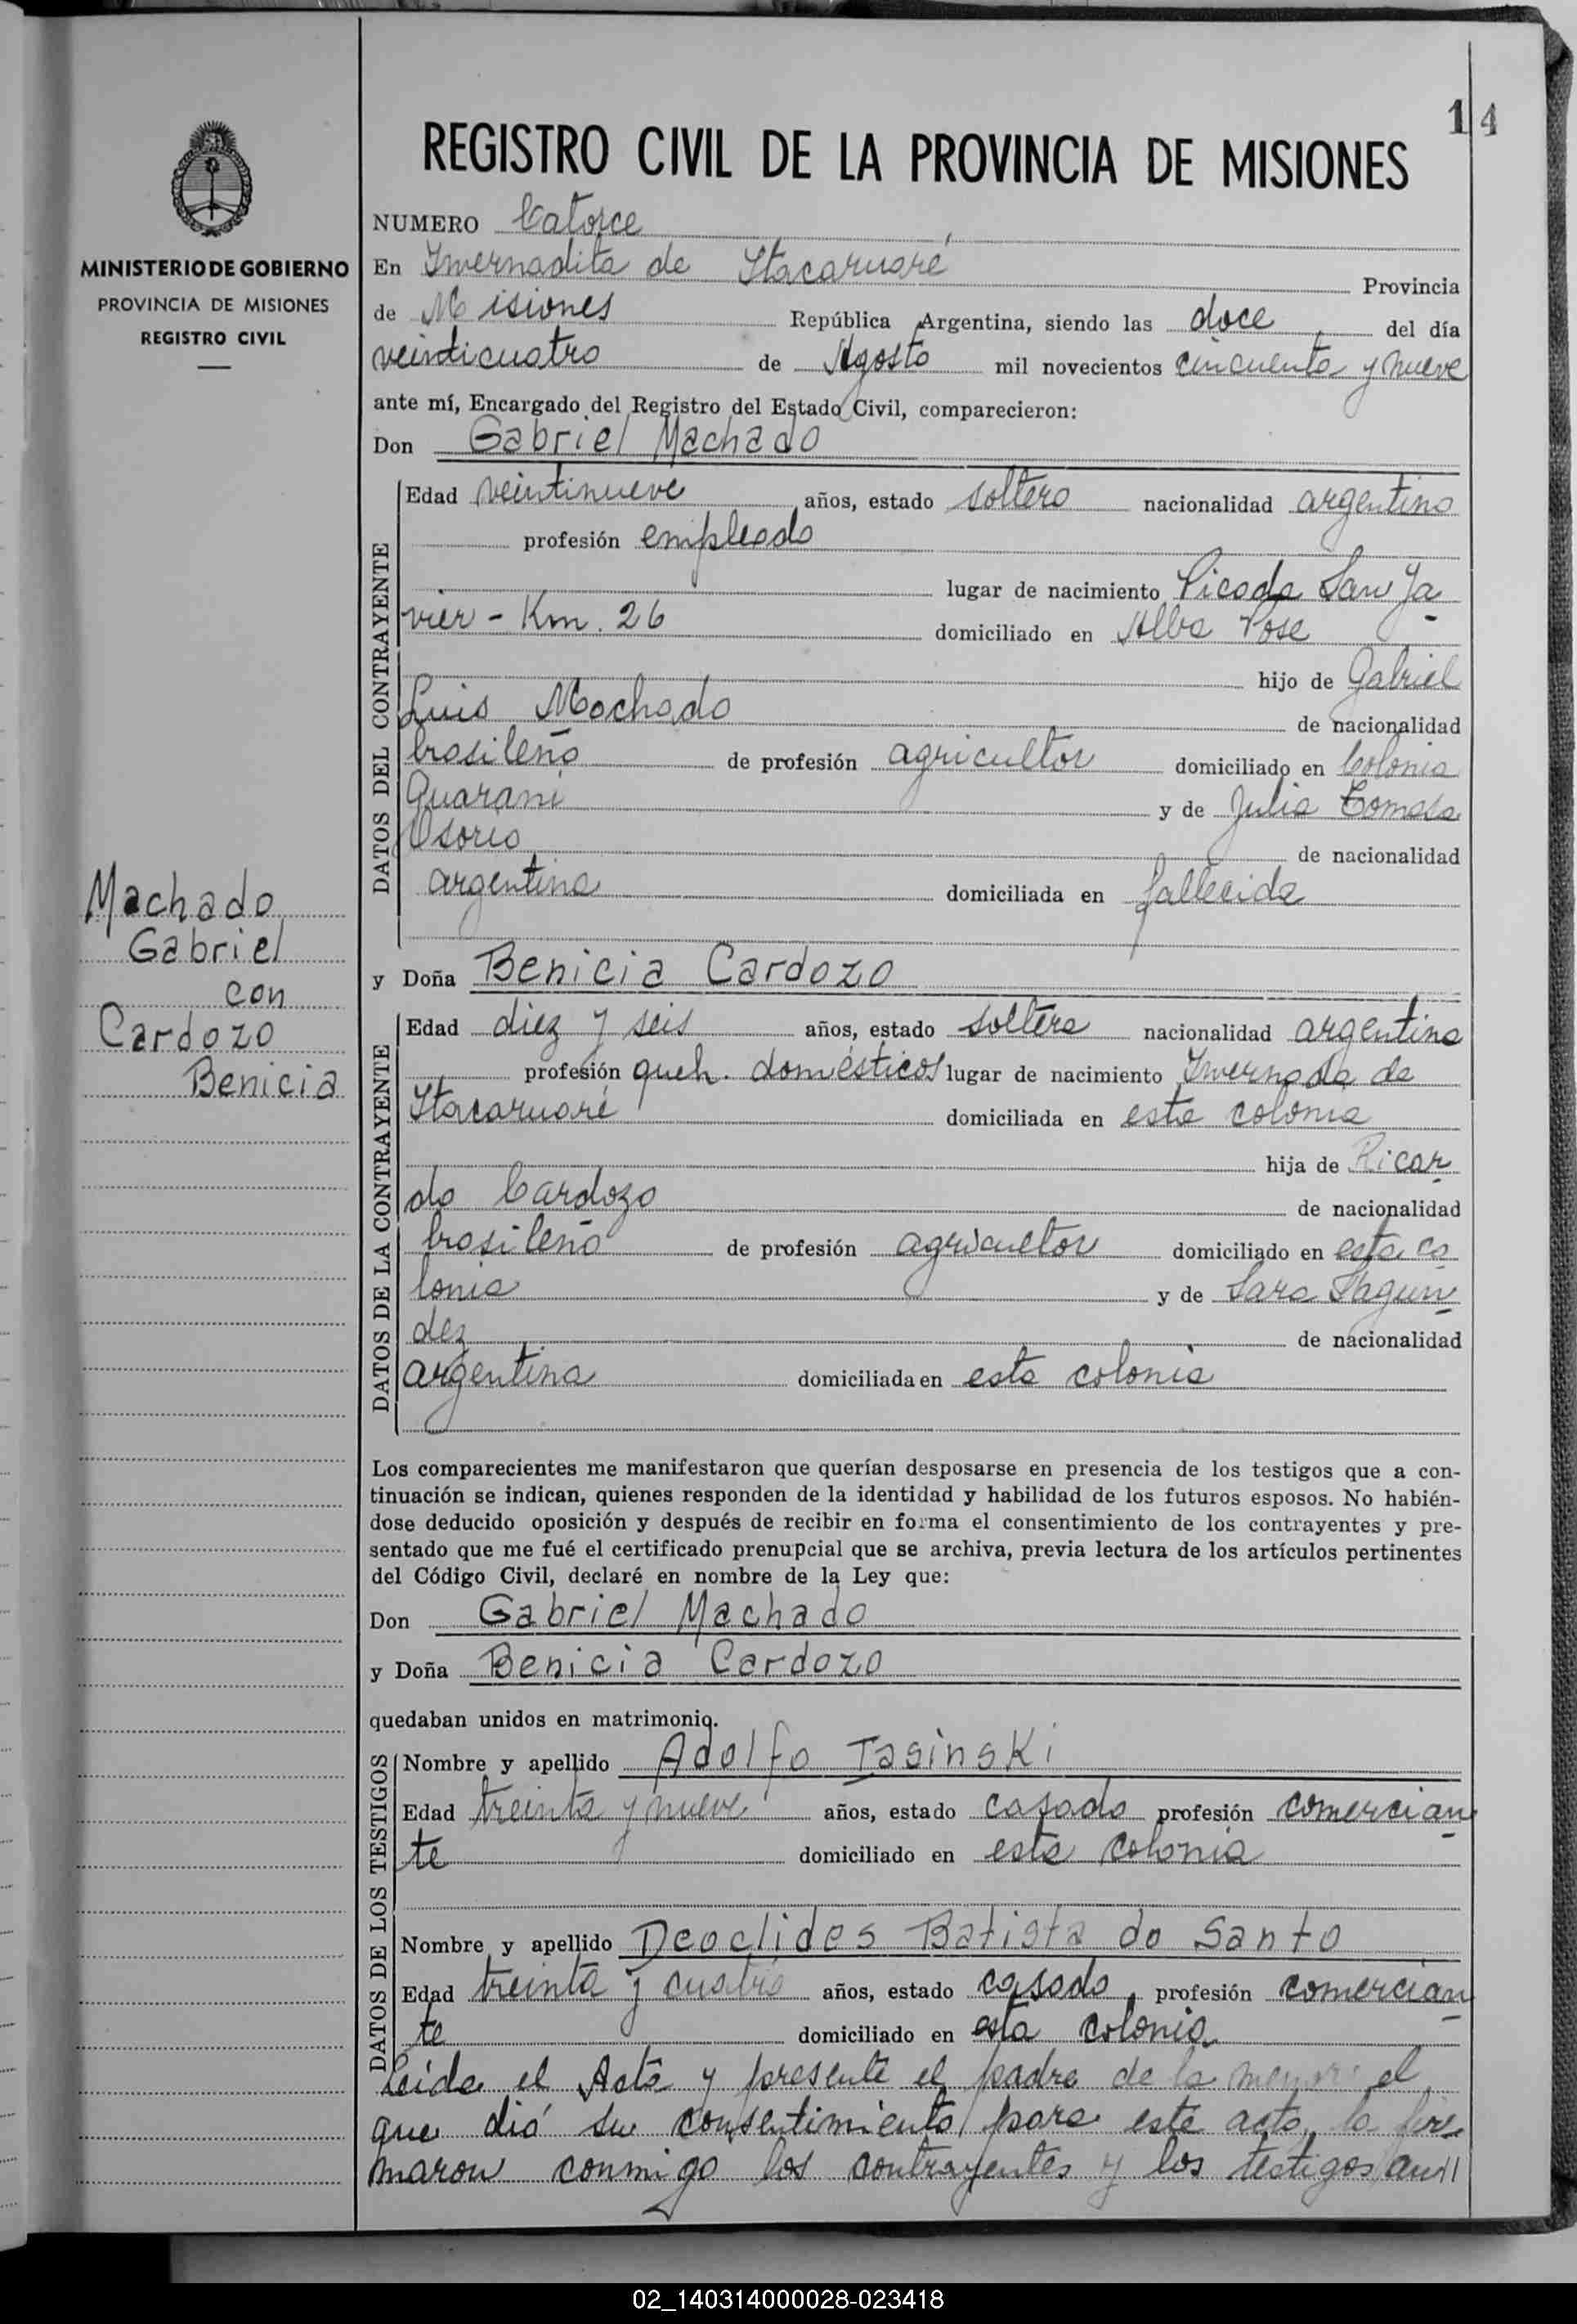 14
REGISTRO CIVIL DE LA PROVINCIA DE MISIONES
MINISTERIO DE GOBIERNO
PROVINCIA DE MISIONES
REGISTRO CIVIL
NUMERO Catorce
En Invernadita de Itacaruaré Provincia
de Misiones República Argentina, siendo las doce del día
veinticuatro de Agosto mil novecientos cincuenta y nueve
ante mí, Encargado del Registro del Estado Civil, comparecieron:
Don Gabriel Machado
DATOS DEL CONTRAYENTE
Edad veintinueve años, estado soltero nacionalidad argentino
profesión empleado
lugar de nacimiento Picada San Ja
vier - Km. 26 domiciliado en Alba Pose
hijo de Gabriel
Luis Machado de nacionalidad
brasileño de profesión agricultor domiciliado en Colonia
Guaraní y de Julia Tomasa
Osorio de nacionalidad
argentina domiciliada en fallecida
Machado
Gabriel
con
Cardozo
Benicia
y Doña Benicia Cardozo
DATOS DE LA CONTRAYENTE
Edad diez y seis años, estado soltera nacionalidad argentina
profesión queh. domésticos lugar de nacimiento Invernada de
Itacaruaré domiciliada en esta colonia
hija de Ricar
do Cardozo de nacionalidad
brasileño de profesión agricultor domiciliado en esta co
lonia y de Sara
dez de nacionalidad
argentina domiciliada en esta colonia
Los comparecientes me manifestaron que querían desposarse en presencia de los testigos que a con-
tinuación se indican, quienes responden de la identidad y habilidad de los futuros esposos. No habién-
dose deducido oposición y después de recibir en forma el consentimiento de los contrayentes y pre-
sentado que me fué el certificado prenupcial que se archiva, previa lectura de los artículos pertinentes
del Código Civil, declaré en nombre de la Ley que:
Don Gabriel Machado
y Doña Benicia Cardozo
quedaban unidos en matrimonio.
DATOS DE LOS TESTIGOS
Nombre y apellido Adolfo Iasinski
Edad treinta y nueve años, estado casado profesión comercian
te domiciliado en esta colonia
Nombre y apellido Deoclides Batista do Santo
Edad treinta y cuatro años, estado casado profesión comercian
te domiciliado en esta colonia
Leida el Acta y presente el padre de la menor el
que dió su consentimiento para este acto, la fir
maron conmigo los contrayentes y los testigos
02_140314000028-023418